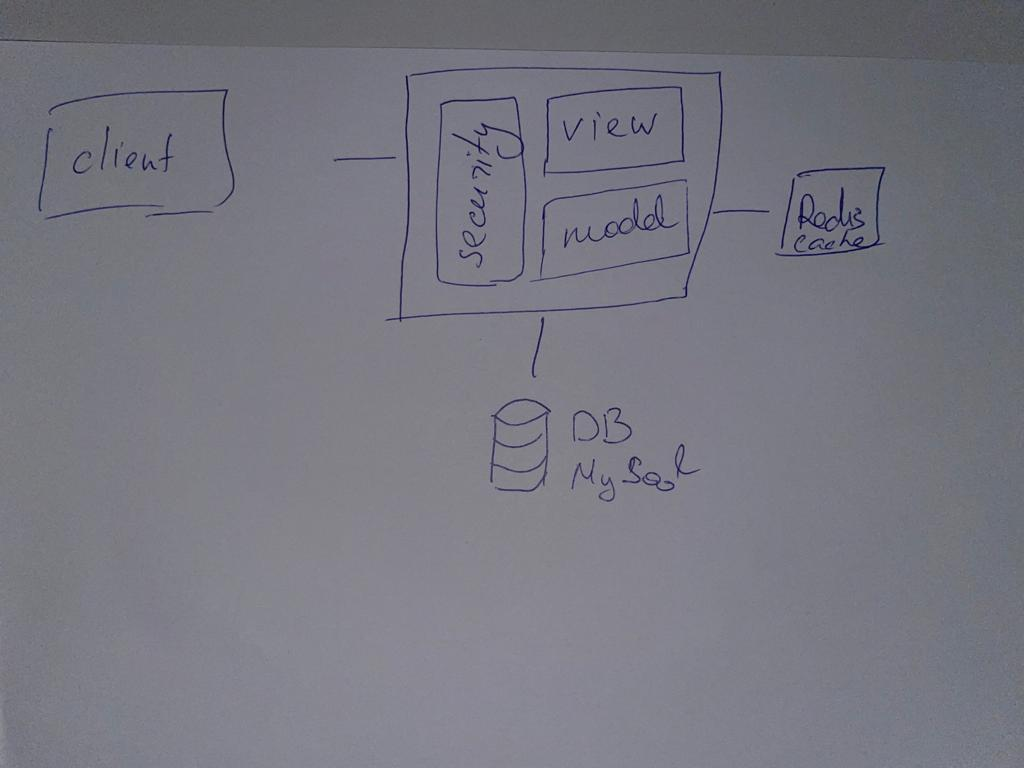 client
security
view
model
Redis
cache
DB
MySql